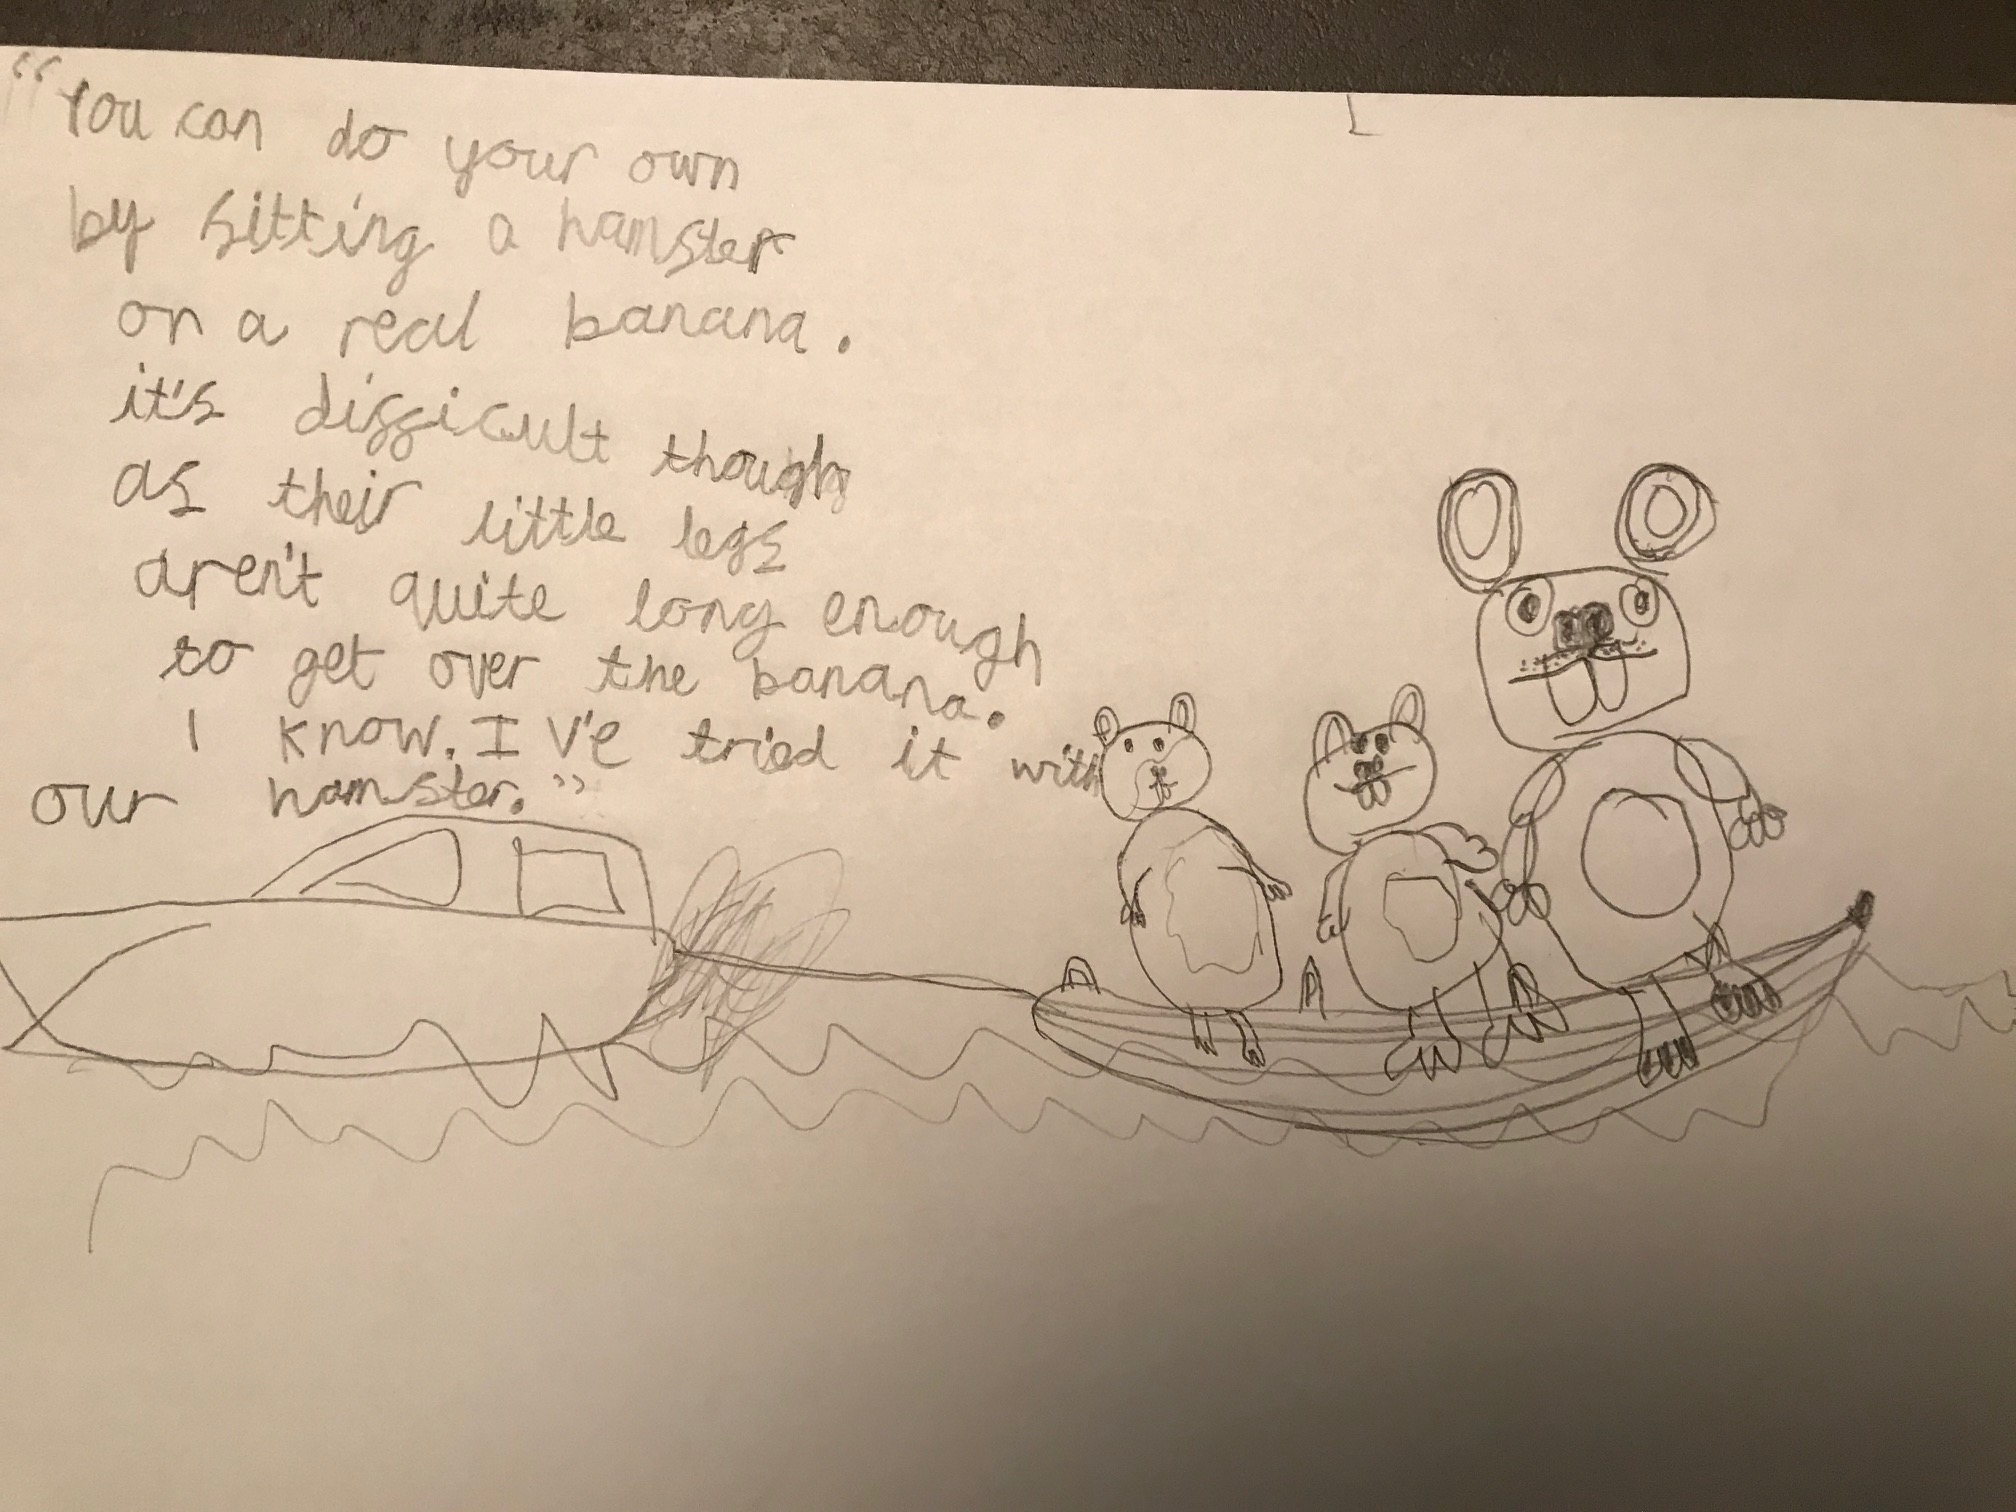 "You can do your own
by sitting a hamster
on a real banana.
it's difficult though
as their little legs
aren't quite long enough
to get over the banana.
I know. I v'e tried it with
our hamster."